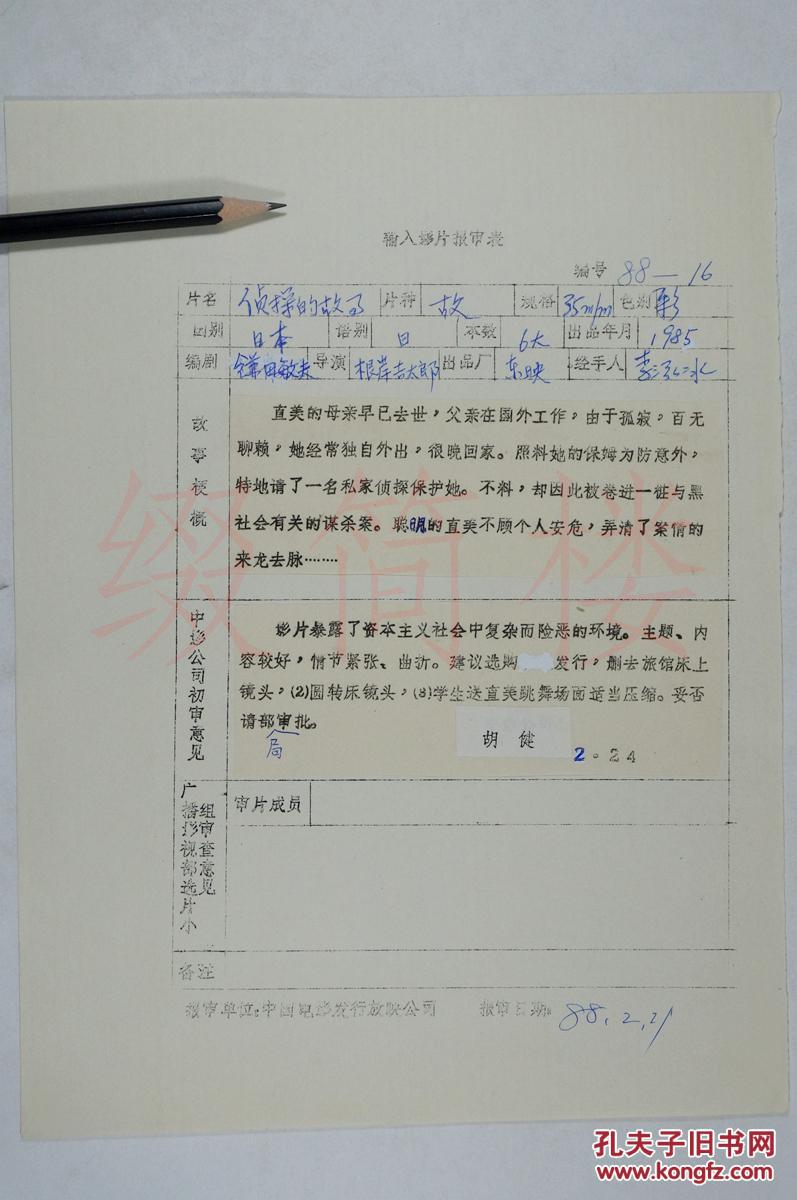 输入影片报审表
编号 88—16
片名 侦探的故事 片种 故 规格 35m/m 色别 彩
国别 日本 语别 日 本数 6大 出品年月 1985
编剧 镰田敏夫 导演 根岸吉太郎 出品厂 东映 经手人
故事梗概
直美的母亲早已去世，父亲在国外工作，由于孤寂，百无
聊赖，她经常独自外出，很晚回家。照料她的保姆为防意外，
特地请了一名私家侦探保护她。不料，却因此被卷进一桩与黑
社会有关的谋杀案。聪明的直美不顾个人安危，弄清了案情的
来龙去脉………
中影公司初审意见
影片暴露了资本主义社会中复杂而险恶的环境。主题、内
容较好，情节紧张、曲折。建议选购 发行，删去旅馆床上
镜头，(2)圆转床镜头，(3)学生送直美跳舞场面适当压缩。妥否
请部审批。
局
胡健
2.24
广播影视部选片小组审查意见
审片成员
备注
报审单位：中国电影发行放映公司 报审日期：88.2.21
缀简楼
孔夫子旧书网
www.kongfz.com